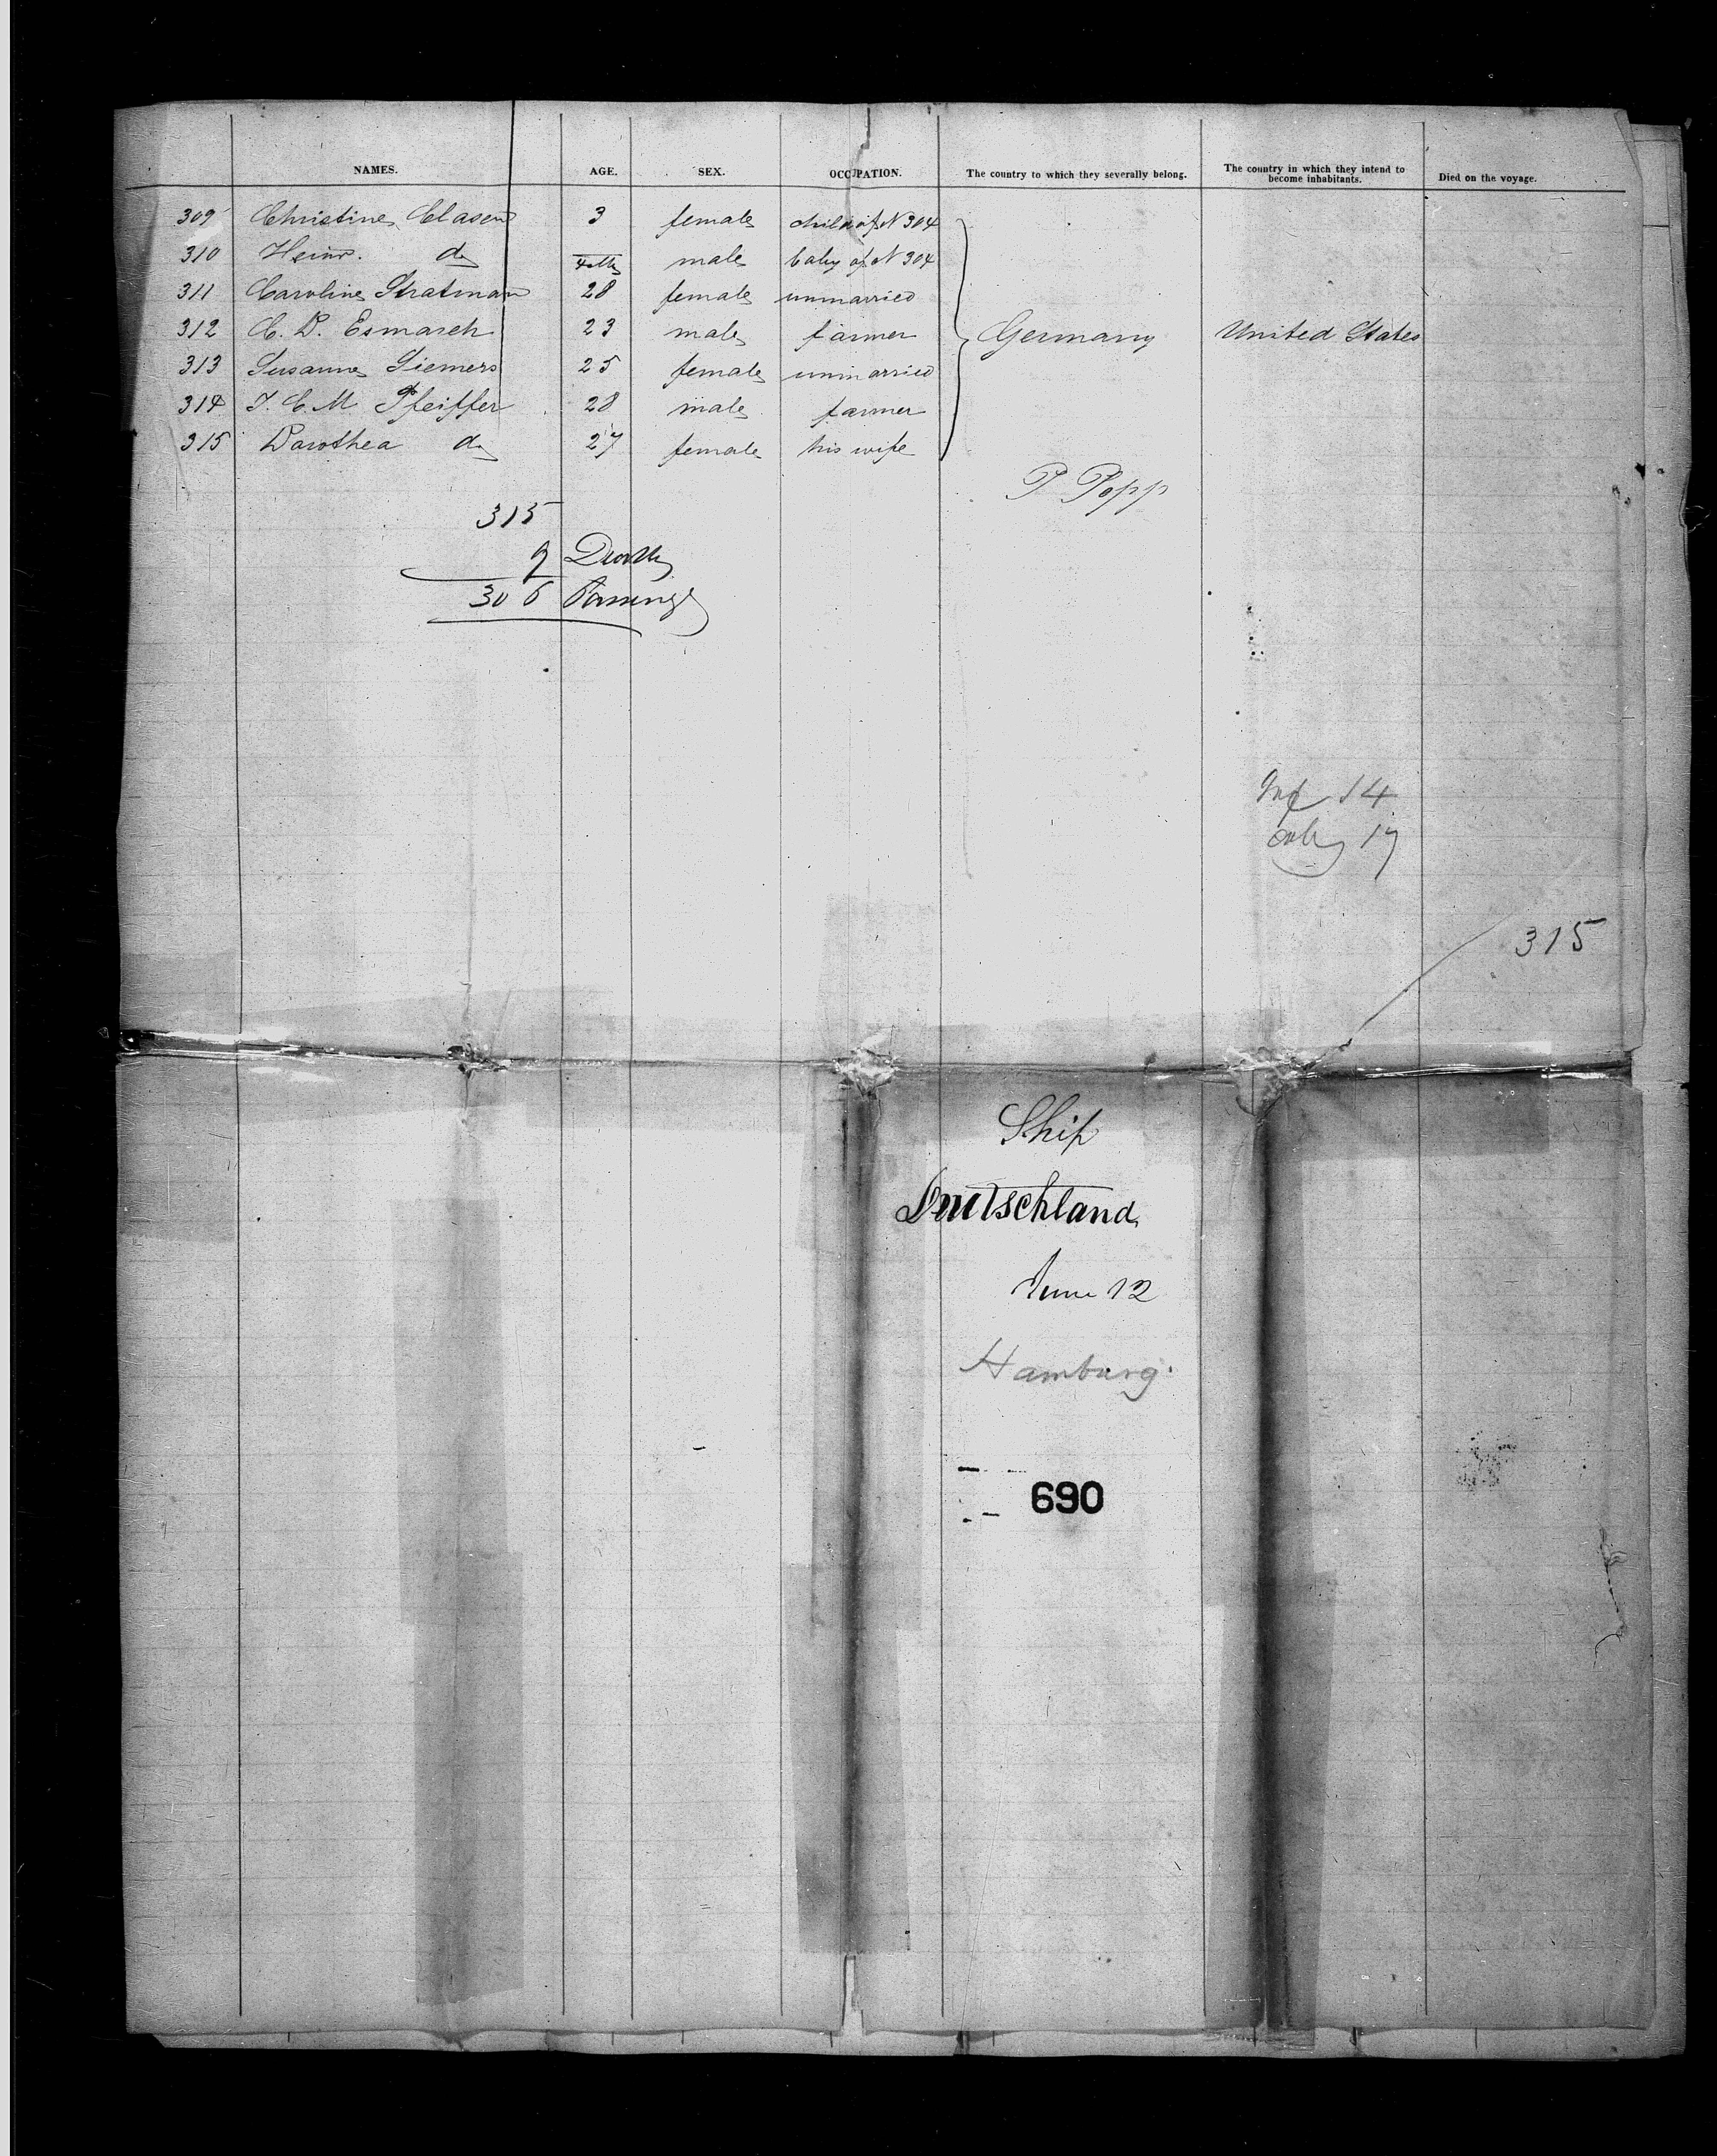 NAMES. AGE. SEX. OCCUPATION. The country to which they severally belong. The country in which they intend to become inhabitants. Died on the voyage.
309 Christine Clasen 3 female child of N 304
310 Heinr. do male baby of N 304
311 Caroline Stratman 28 female unmarried
312 C. D. Esmarch 23 male farmer Germany United States
313 Susanne Siemers 25 female unmarried
314 J. C. M Pfeiffer 28 male farmer
315 Dorothea do 27 female his wife
P Popp
315
9 Deaths
306
Inf 14
17
315
Ship
Deutschland
June 12
Hamburg.
690